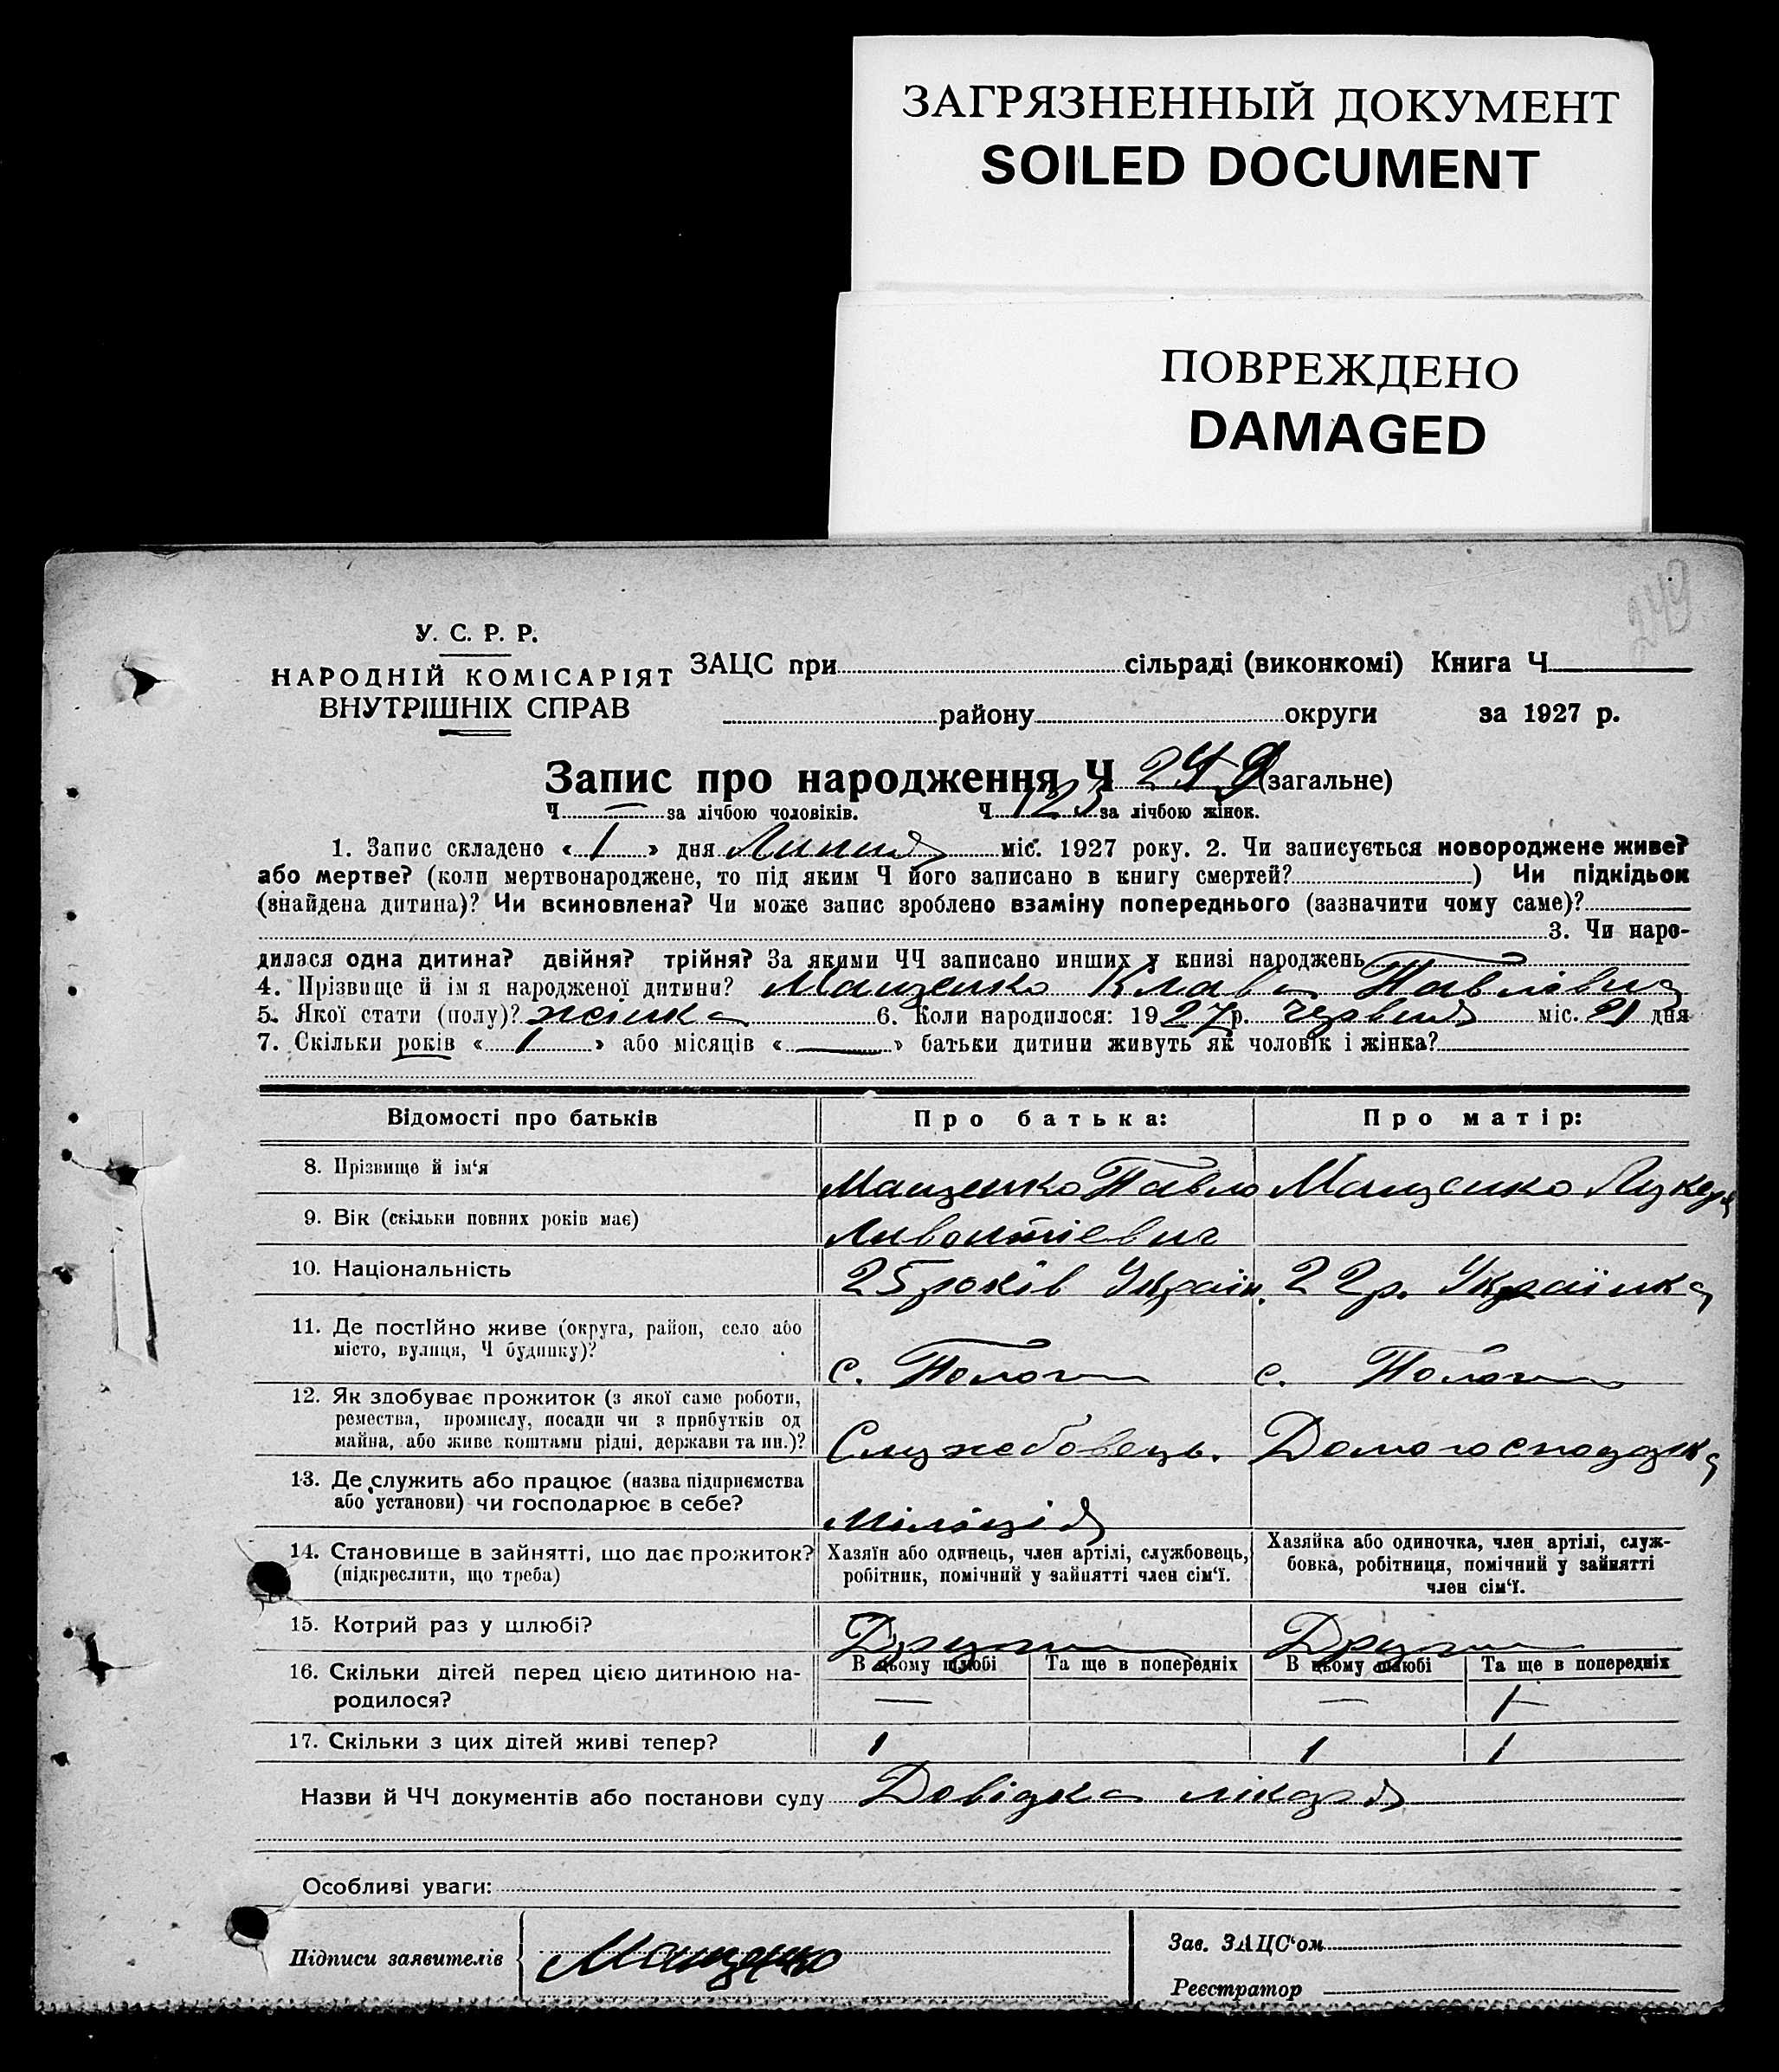 ЗАГРЯЗНЕННЫЙ ДОКУМЕНТ
SOILED DOCUMENT
ПОВРЕЖДЕНО
DAMAGED
249
У. С. Р. Р.
НАРОДНІЙ КОМІСАРІЯТ
ВНУТРІШНІХ СПРАВ
ЗАЦС при сільраді (виконкомі) Книга Ч
району округи за 1927 р.
Запис про народження Ч 249 (загальне)
Ч — за лічбою чоловіків. Ч 123 за лічбою жінок.
1. Запис складено « 1 » дня Липня міс. 1927 року. 2. Чи записується новороджене живе?
або мертве? (коли мертвонароджене, то під яким Ч його записано в книгу смертей? ) Чи підкідьок
(знайдена дитина)? Чи всиновлена? Чи може запис зроблено взаміну попереднього (зазначити чому саме)?
3. Чи наро-
дилася одна дитина? двійня? трійня? За якими ЧЧ записано инших у книзі народжень
4. Прізвище й ім я народженої дитини? Мащенко Клава Павлівна
5. Якої стати (полу)? жінка 6. Коли народилося: 1927 р. червня міс. 21 дня
7. Скільки років « 1 » або місяців « — » батьки дитини живуть як чоловік і жінка?
Відомості про батьків Про батька: Про матір:
8. Прізвище й ім‘я Мащенко Павло Мащенко Лукера
9. Вік (скільки повних років має)
10. Національність 25 років Україн. 22 р. Українка
11. Де постІйно живе (округа, район, село або
місто, вулиця, Ч будинку)? с. Пологи с. Пологи
12. Як здобуває прожиток (з якої саме роботи,
ремества, промислу, посади чи з прибутків од
майна, або живе коштами рідні, держави та ин.)? Службовець. Домогосподарка
13. Де служить або працює (назва підприємства
або установи) чи господарює в себе? Міліція
14. Становище в зайнятті, що дає прожиток?
(підкреслити, що треба)
Хазяїн або одинець, член артілі, службовець,
робітник, помічний у зайнятті член сім‘ї.
Хазяйка або одиночка, член артілі, служ-
бовка, робітниця, помічний у зайнятті
член сім‘ї.
15. Котрий раз у шлюбі? Другий Другий
16. Скільки дітей перед цією дитиною на-
родилося?
В цьому шлюбі Та ще в попередніх В цьому шлюбі Та ще в попередніх
— — 1
17. Скільки з цих дітей живі тепер? 1 1 1
Назви й ЧЧ документів або постанови суду Довідка лікаря
Особливі уваги:
Підписи заявителів Мащенко
Зав. ЗАЦС‘ом
Реєстратор